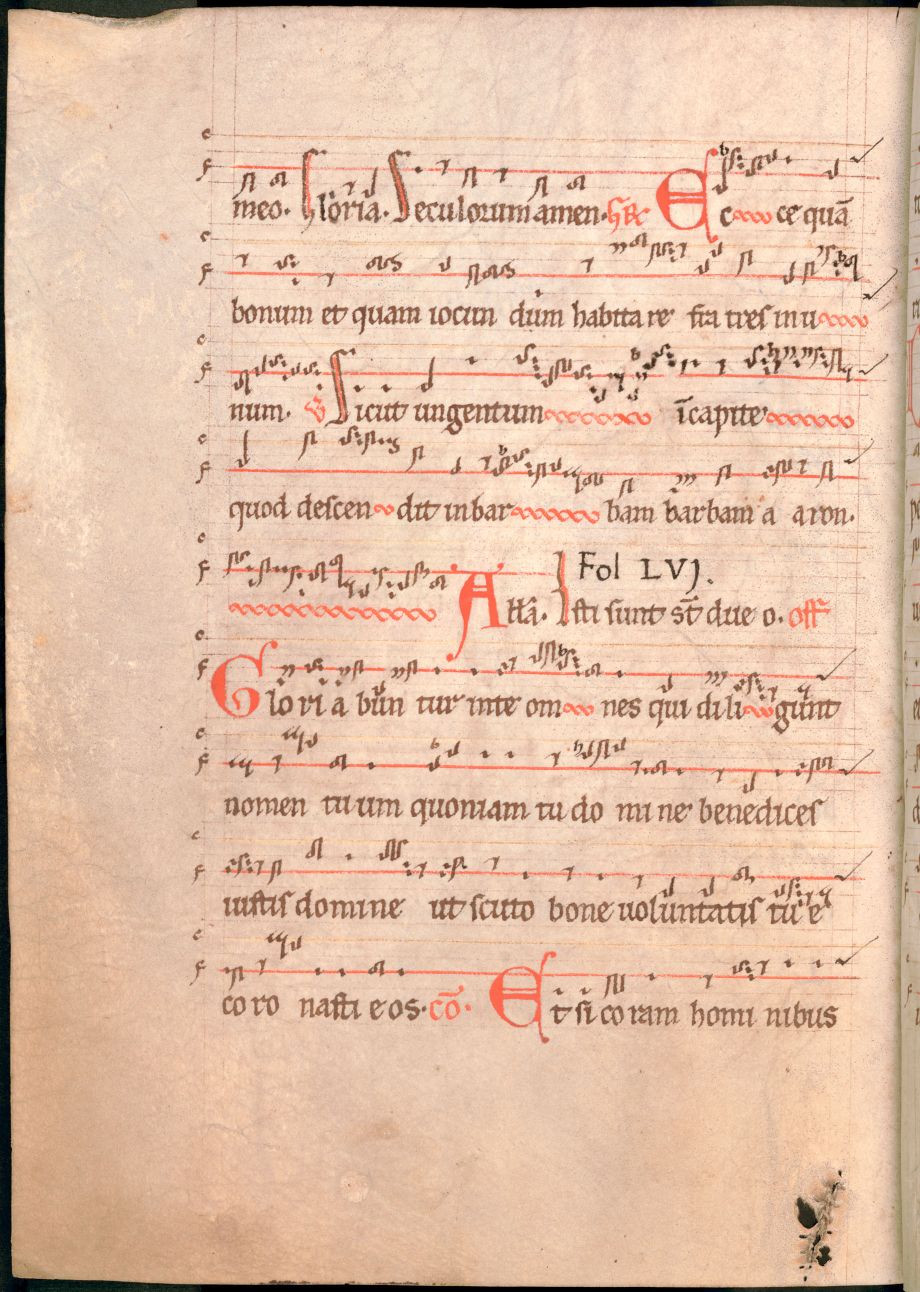 meo. Gloria. Seculorum amen. GR Ec ce quā
bonum et quam iocun dum habitare fra tres in u
num. V Sicut ungentum ī capite
quod descen dit in bar bam barbam a aron.
Allā. Isti sunt sт̄ due o. off Fol LVJ.
Glo ri a bun tur in te om nes qui di li gunt
nomen tu um quoniam tu do mi ne benedices
iustis domine ut scuto bone uoluntatis tu e
co ro nasti e os. cō. Et si co ram homi nibus